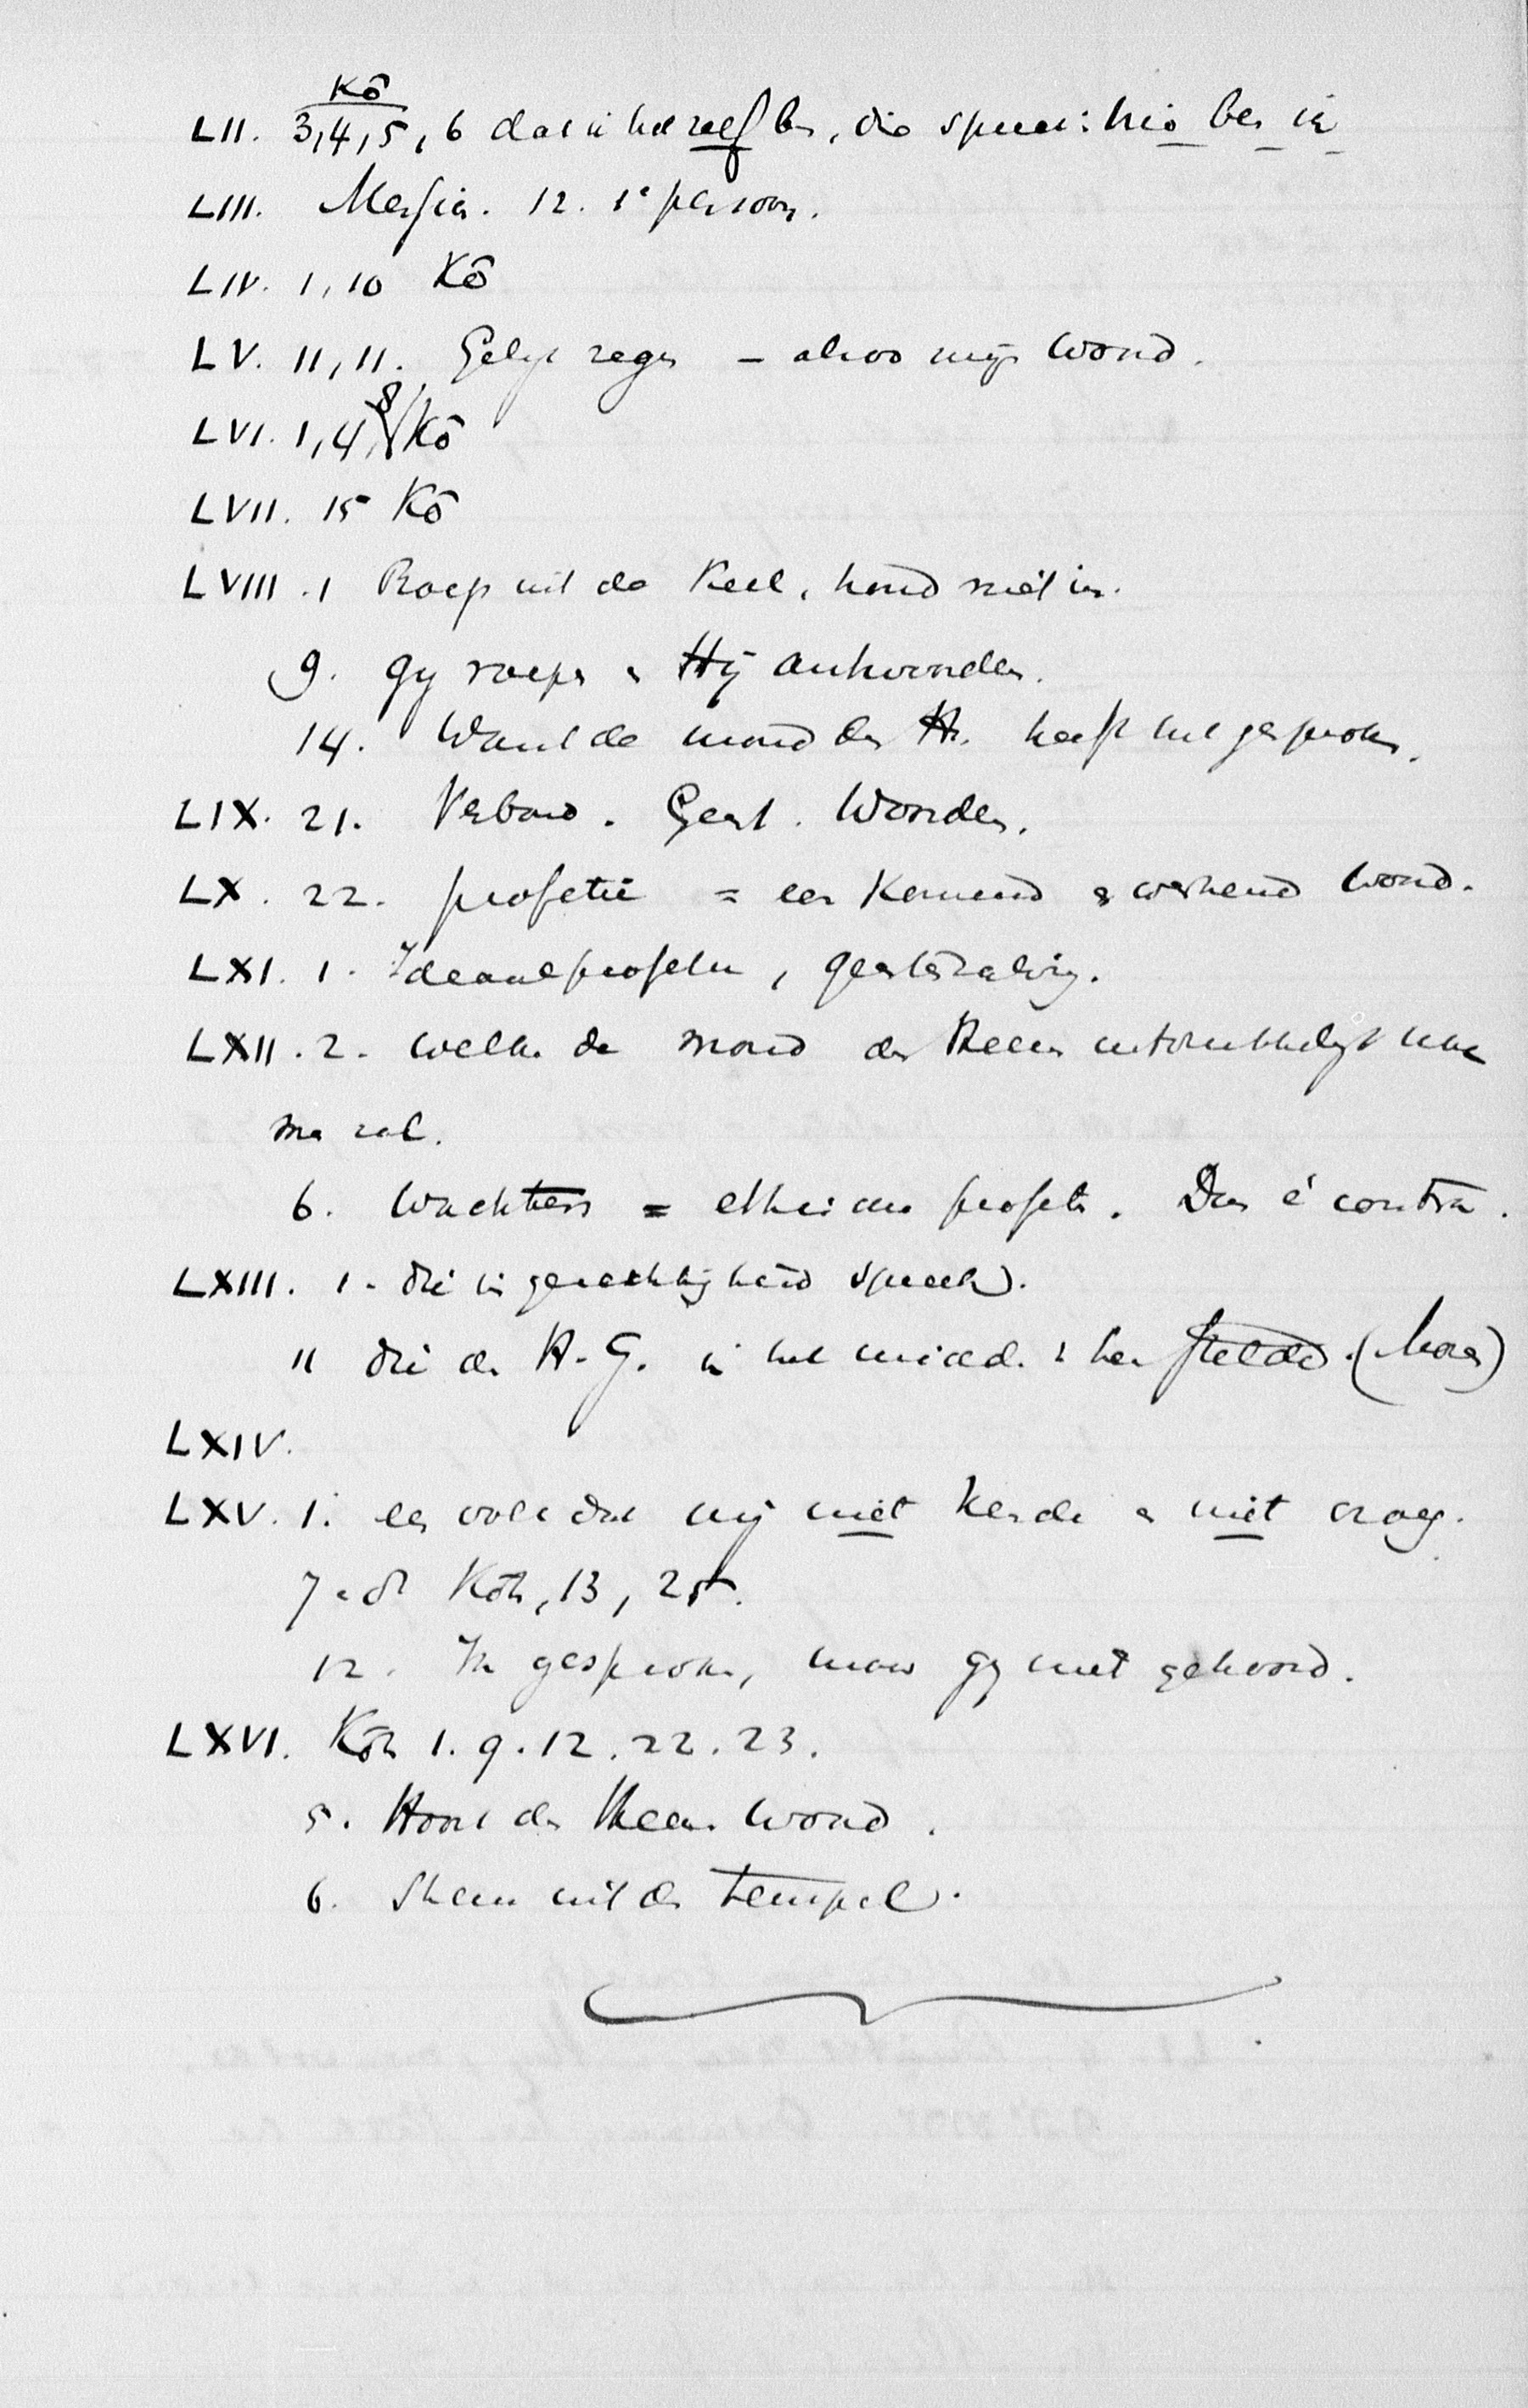 Kô
LII. 3,4,5, 6 dat ik het zelf ben, die spreek: hie ben ik
LIII. Messias. 12. 1e persoon.
LIV. 1,10 Kô
LV. 11,11. Gelijk regen – alzoo mijn Woord.
LVI. 1,4, 8 Kô
LVII. 15 Kô
LVIII. 1 Roep uit de keel, houd niet in.
9. Gy roepen & Hij antwoorden.
14. Want de mond des Hn. heeft het gesproken.
LIX. 21. Verbond. Geest. Woorden.
LX. 22. profetie = een komend & werkend woord.
LXI. 1. Ideaalprofetie, geesteszalving.
LXII. 2. welke de mond des Heeren uitdrukkelijk
zal.
6. Wachters = profeten. Dus é contra.
LXIII. 1. die in gerechtigheid spreek.
11 die de H. G. in het midd. v hen stelde. (Mozes)
LXIV.
LXV. 1. een volk dat mij niet kende & niet vraag.
7 & 8 Kôh, 13, 25.
12. Ik gesproken, maar gy niet gehoord.
LXVI. Kôh 1. 9. 12. 22. 23.
5. Hoort des Heeren woord.
6. Stem uit den tempel.